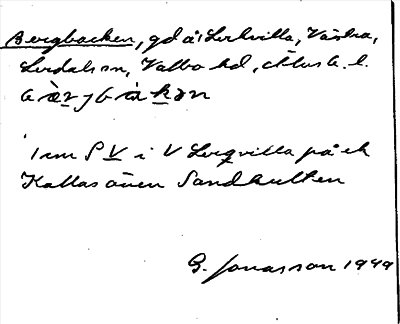 Bergbacken, gd å Lerkvilla, Västra,
Lerdals sn, Valbo hd, Älvsb. l.
bærjbakən
1 cm S V i V Lerqvilla på ek
Kallas även Sandkullen
G. Jonasson 1949